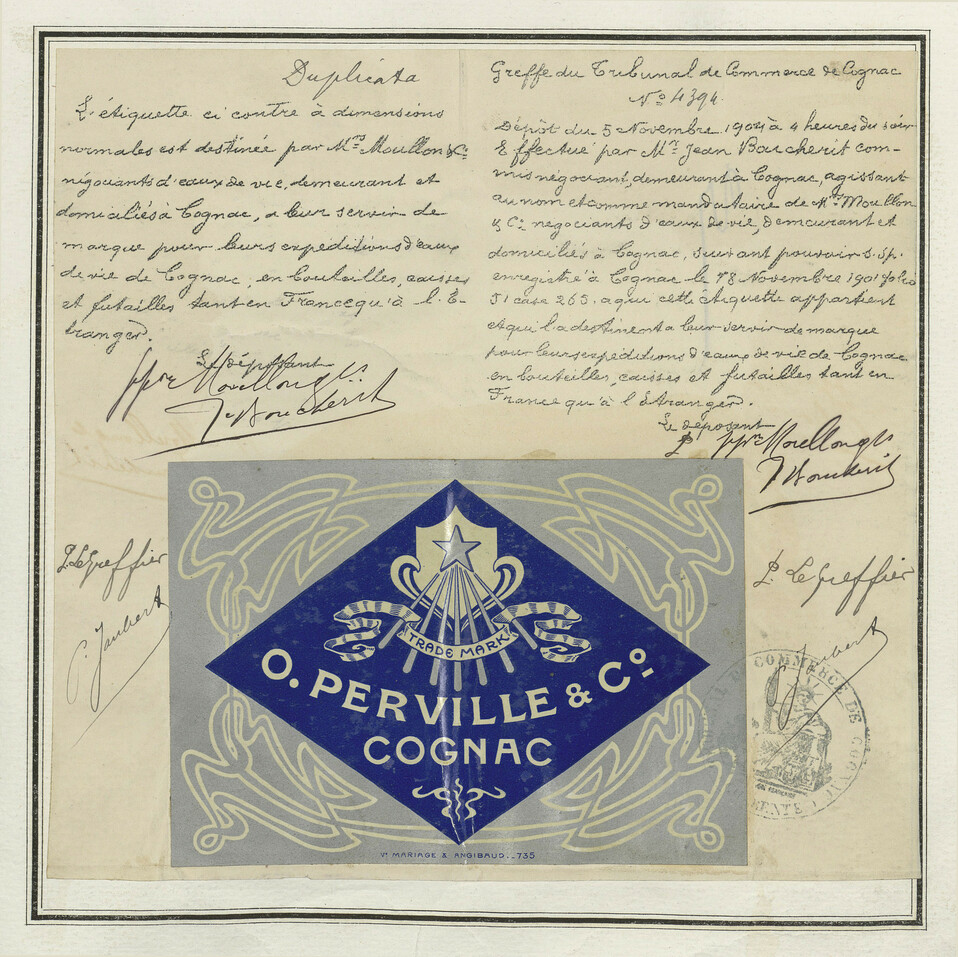 Duplicata
L'étiquette ci contre à dimensions
normales est destinée par Mrs Moullon & Cie
négociants d'eaux de vie, demeurant et
domiciliés à Cognac, a leur servir de
marque pour leurs expéditions d'eaux
de vie de Cognac, en bouteilles, caisses
et futailles tant en France qu'à l'É-
tranger.
Le déposant
ppon Moullon & Cie
Jn Boucherit
P. Le Greffier
Jaubert
Greffe du Tribunal de Commerce de Cognac
No 4394.
Dépôt du 5 Novembre 1904 à 4 heures du soir
Effectué par Mr Jean Boucherit com-
mis négociant, demeurant à Cognac, agissant
au nom et comme mandataire de Mrs Moullon
& Ce négociants d'eaux de vie, demeurant et
domiciliés à Cognac, suivant pouvoir s. sp.
enregistré à Cognac le 18 Novembre 1901 folio
51 case 265. à qui cette étiquette appartient
et qui la destinent a leur servir de marque
pour leurs expéditions d'eaux de vie de Cognac
en bouteilles, caisses et futailles tant en
France qu'à l'Étranger.
Le déposant
P. ppon Moullon & Cie
Jn Boucherit
P. Le Greffier
Jaubert
TRADE MARK
O. PERVILLE & Co
COGNAC
Ve MARIAGE & ANGIBAUD._735
COMMERCE DE COGNAC